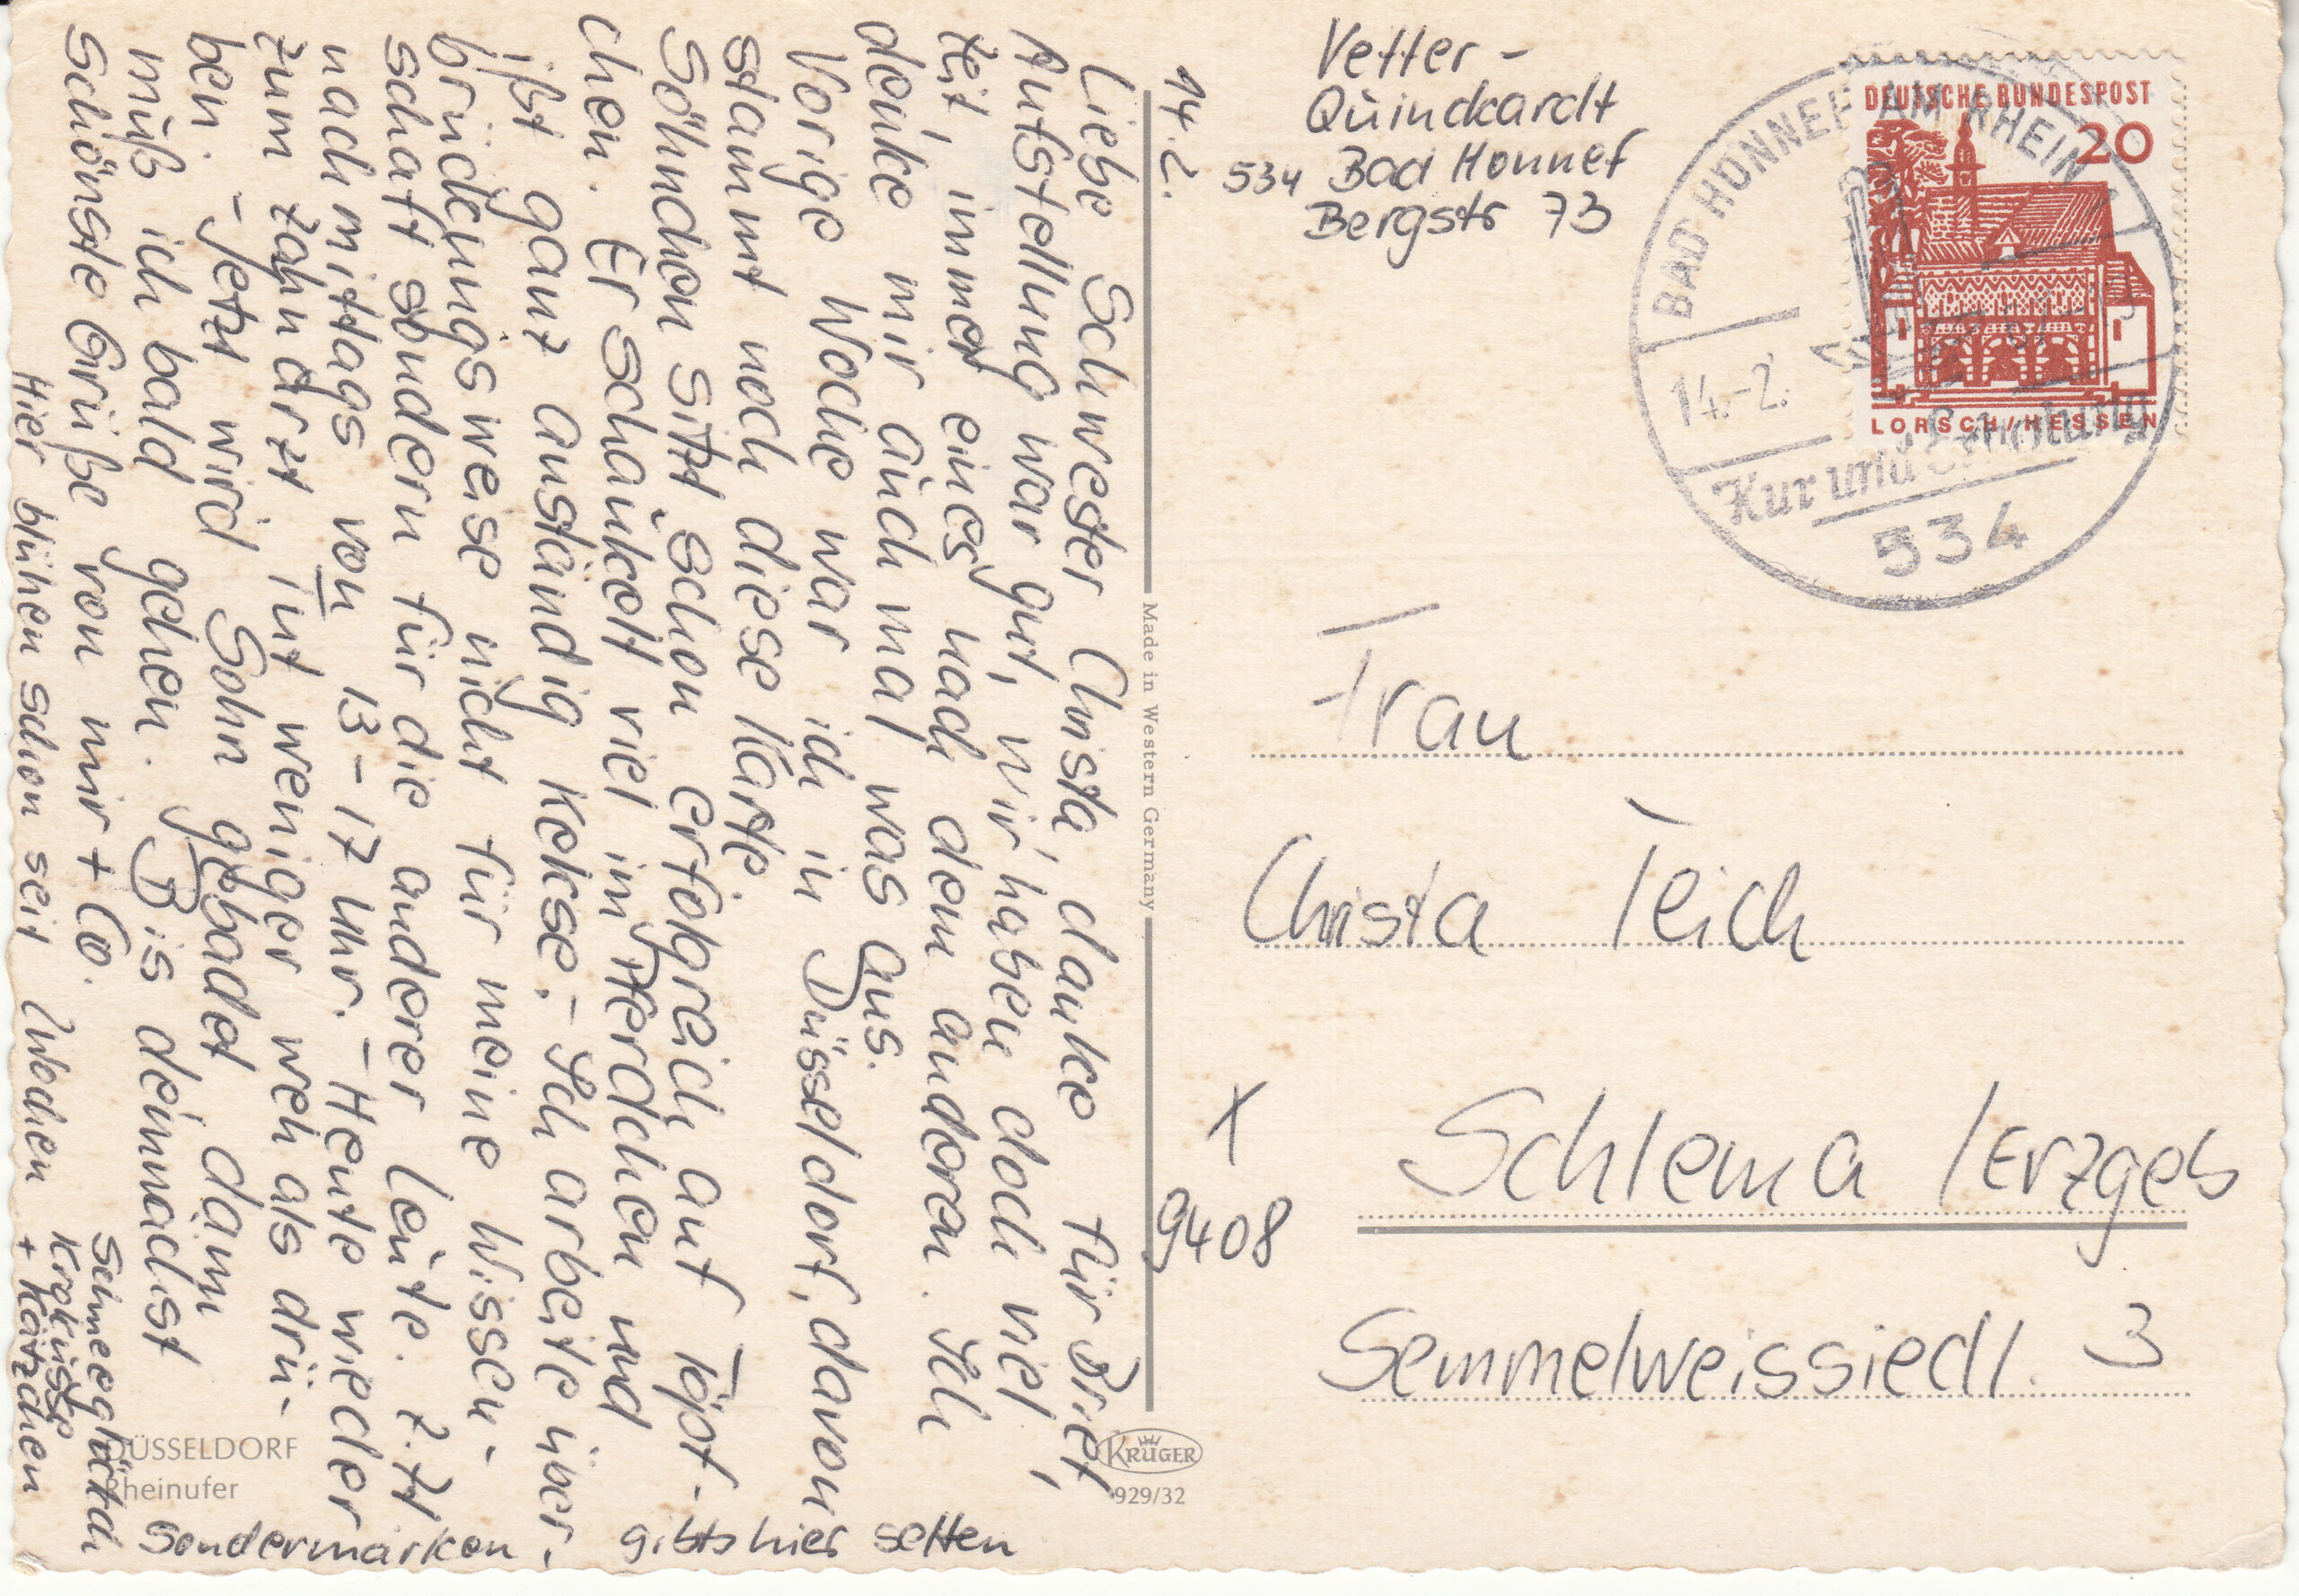 14.2.
Liebe Schwester Christa, danke für Brief,
Aufstellung war gut, wir haben doch viel
Zeit, immer eines nach dem anderen. Ich
denke mir auch mal was aus.
Vorige Woche war ich in Düsseldorf, davon
stammt noch diese Karte.
Söhnchen sitzt schon erfolgreich auf Töpf-
chen. Er schaukelt viel im Pferdchen und
ißt ganz anständig Kekse.- Ich arbeite über-
brückungsweise nicht für meine Wissen-
schaft sondern für die anderer Leute. z.Zt
nachmittags von 13-17 Uhr. - Heute wieder
zum Zahnarzt tut weniger weh als drü-
ben. - Jetzt wird Sohn gebadet dann
muß ich bald gehen. Bis demnächst
schönste Grüße von mir + Co.
Hier blühen schon seit Wochen
Schneeglöckch
Krokusse
+ Kätzchen
Sondermarken - gibts hier selten
DÜSSELDORF
Rheinufer
Made in Western Germany
KRÜGER
929/32
Vetter-
Quinckardt
534 Bad Honnef
Bergstr 73
DEUTSCHE BUNDESPOST
20
LORSCH/HESSEN
BAD HONNEF AM RHEIN
14.-2.
Kur und Erholung
534
Frau
Christa Teich
X
9408
Schlema /Erzgeb
Semmelweissiedl. 3